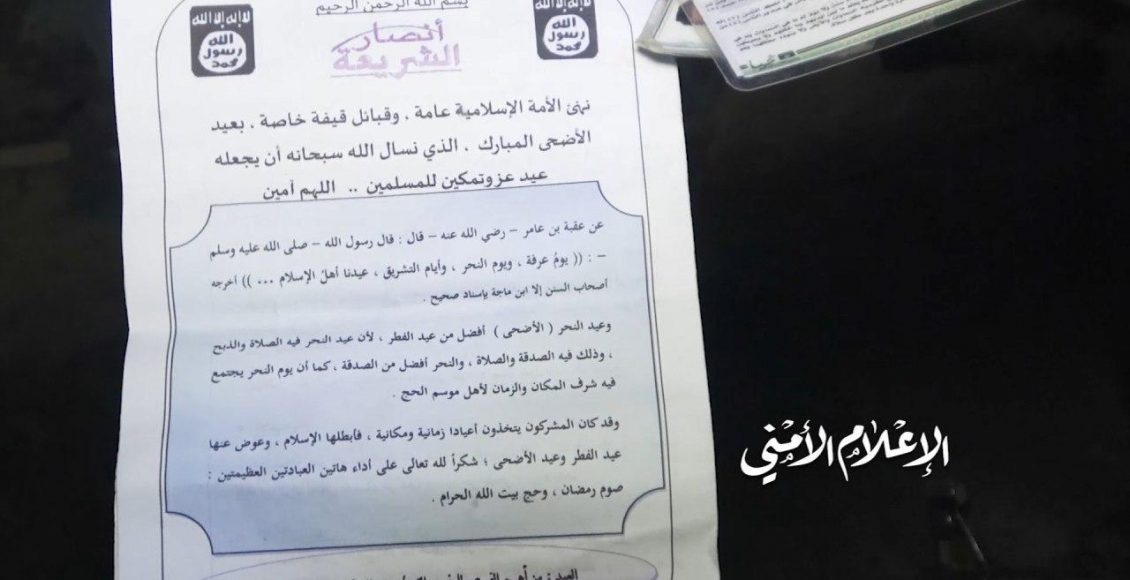 بسم الله الرحمن الرحيم
لا إله إلا الله
الله
رسول
محمد
لا إله إلا الله
الله
رسول
محمد
أنصار
الشريعة
نهنئ الأمة الإسلامية عامة ، وقبائل قيفة خاصة ، بعيد
الأضحى المبارك . الذي نسال الله سبحانه أن يجعله
عيد عز وتمكين للمسلمين .. اللهم آمين
عن عقبة بن عامر – رضي الله عنه – قال : قال رسول الله – صلى الله عليه وسلم
– : (( يومُ عرفة ، ويوم النحر ، وأيام التشريق ، عيدنا أهلَ الإسلام ... )) أخرجه
أصحاب السنن إلا ابن ماجة بإسناد صحيح .
وعيد النحر ( الأضحى ) أفضل من عيد الفطر ، لأن عيد النحر فيه الصلاة والذبح
، وذلك فيه الصدقة والصلاة ، والنحر أفضل من الصدقة ، كما أن يوم النحر يجتمع
فيه شرف المكان والزمان لأهل موسم الحج .
وقد كان المشركون يتخذون أعيادا زمانية ومكانية ، فأبطلها الإسلام ، وعوض عنها
عيد الفطر وعيد الأضحى ؛ شكراً لله تعالى على أداء هاتين العبادتين العظيمتين :
صوم رمضان ، وحج بيت الله الحرام .
الإعلام الأمني